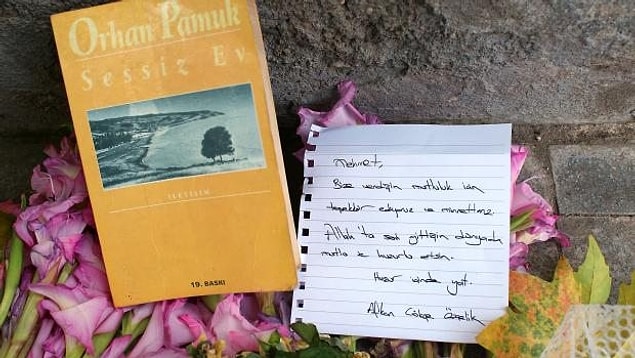 Orhan Pamuk
Sessiz Ev
İLETİŞİM
19. BASKI
Mehmet,
Bize verdiğin mutluluk için
teşekkür ediyoruz ve minnettarız.
Allah'ta seni gittiğin dünyanda
mutlu ve huzurlu etsin.
Huzur içinde yat.